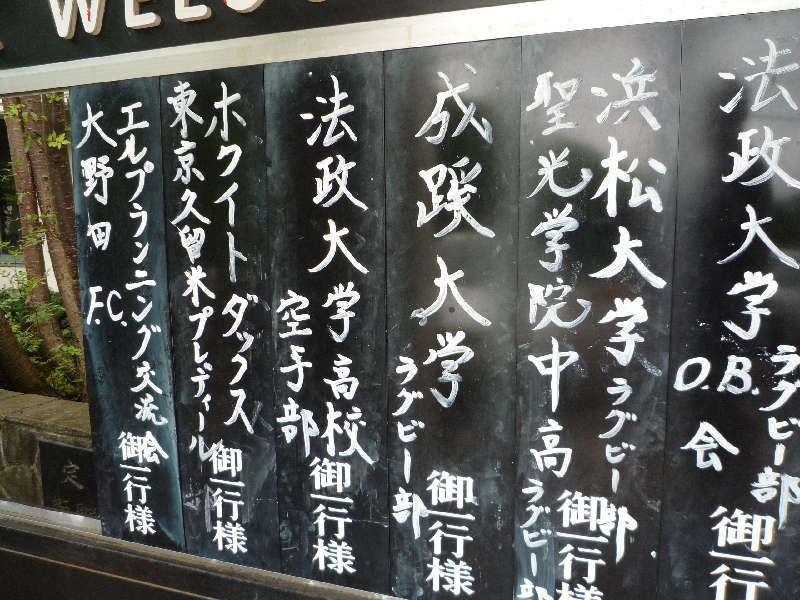 WELCO
法政大学ラグビー部
O.B.会
御一行様
浜松大学ラグビー部
聖光学院中高ラグビー部
御一行様
成蹊大学
ラグビー部
御一行様
法政大学高校
空手部
御一行様
ホワイトダックス
東京久留米プレディール
御一行様
エルプランニング交流会
大野田F.C.
御一行様
定